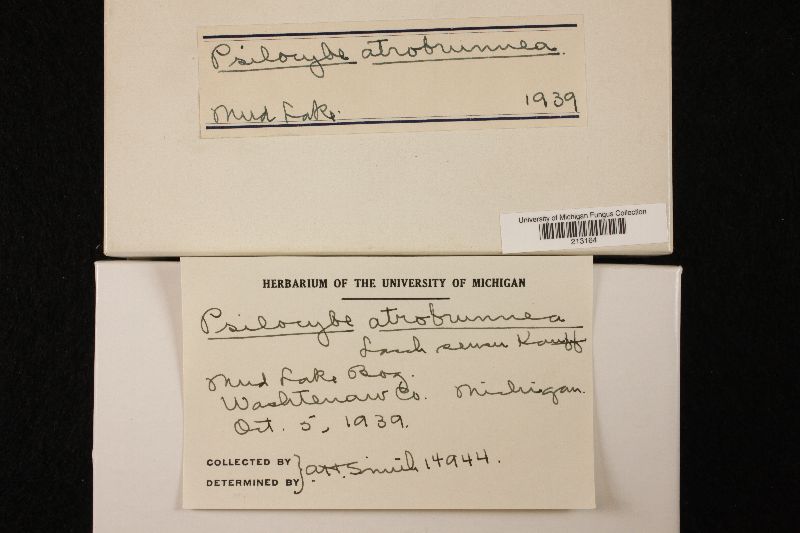 Psilocybe atrobrunnea.
Mud Lake. 1939
University of Michigan Fungus Collection
213164
HERBARIUM OF THE UNIVERSITY OF MICHIGAN
Psilocybe atrobrunnea
Lasch sensu Kauff
Mud Lake Bog.
Washtenaw Co. Michigan.
Oct. 5, 1939.
COLLECTED BY
DETERMINED BY } A.H. Smith 14944.